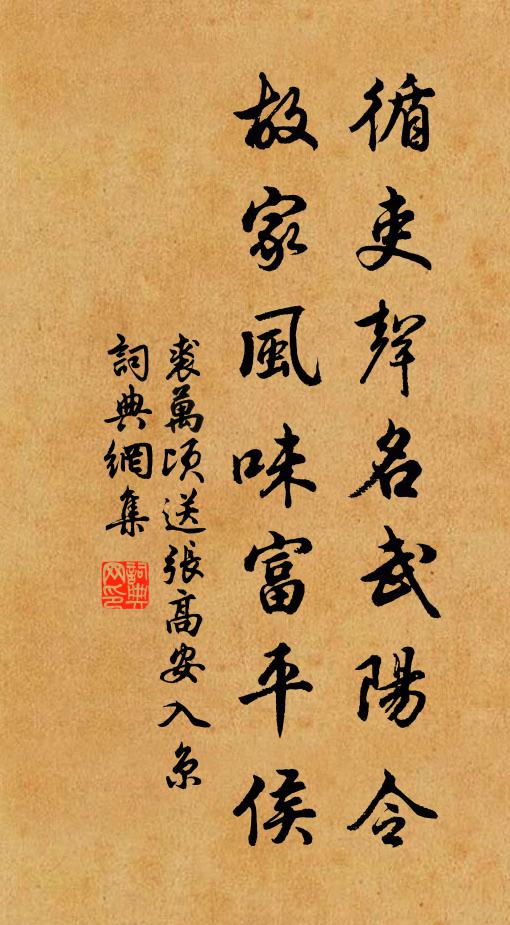 循吏聲名武陽令
故家風味富平侯
裘萬頃送張高安入京
詞典網集
詞典網印